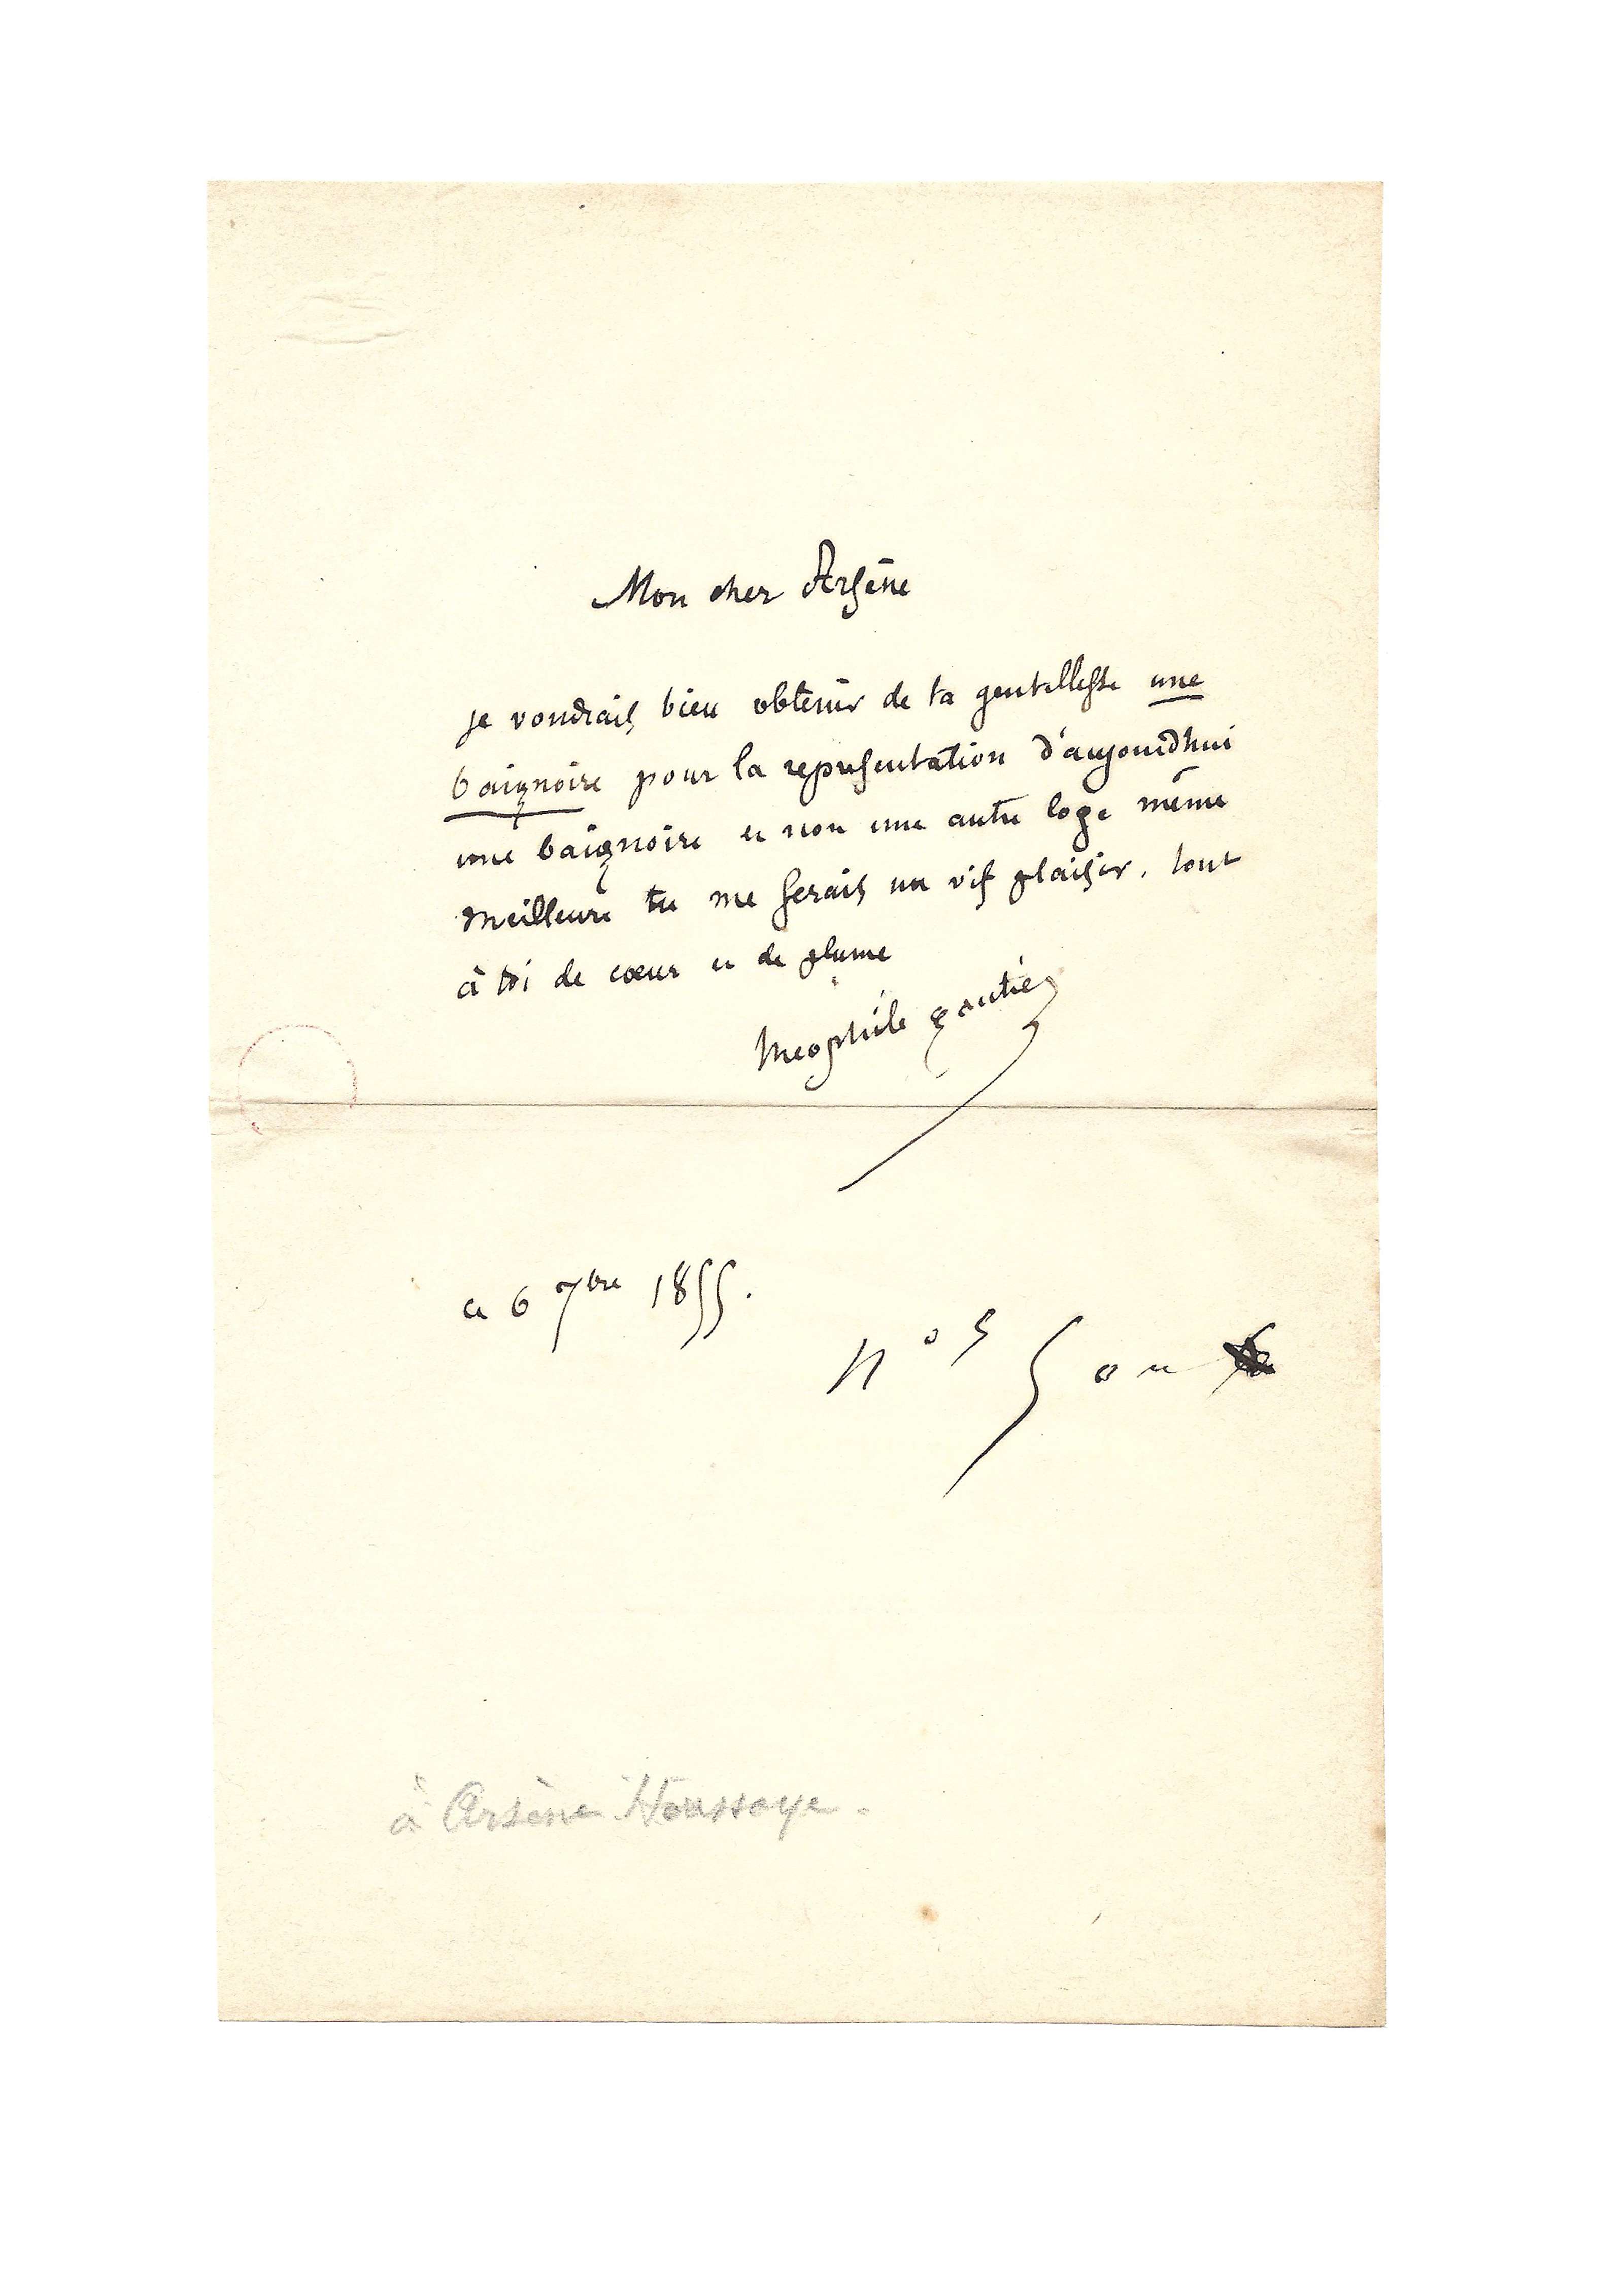 Mon cher Arsène
je voudrais bien obtenir de ta gentillesse une
baignoire pour la representation d'aujourdhui
une baignoire et non une autre loge même
meilleure tu me ferais un vif plaisir. tout
à toi de cœur et de plume
theophile gautier
ce 6 7bre 1855.
nos 5 ou
à Arsène Houssaye.